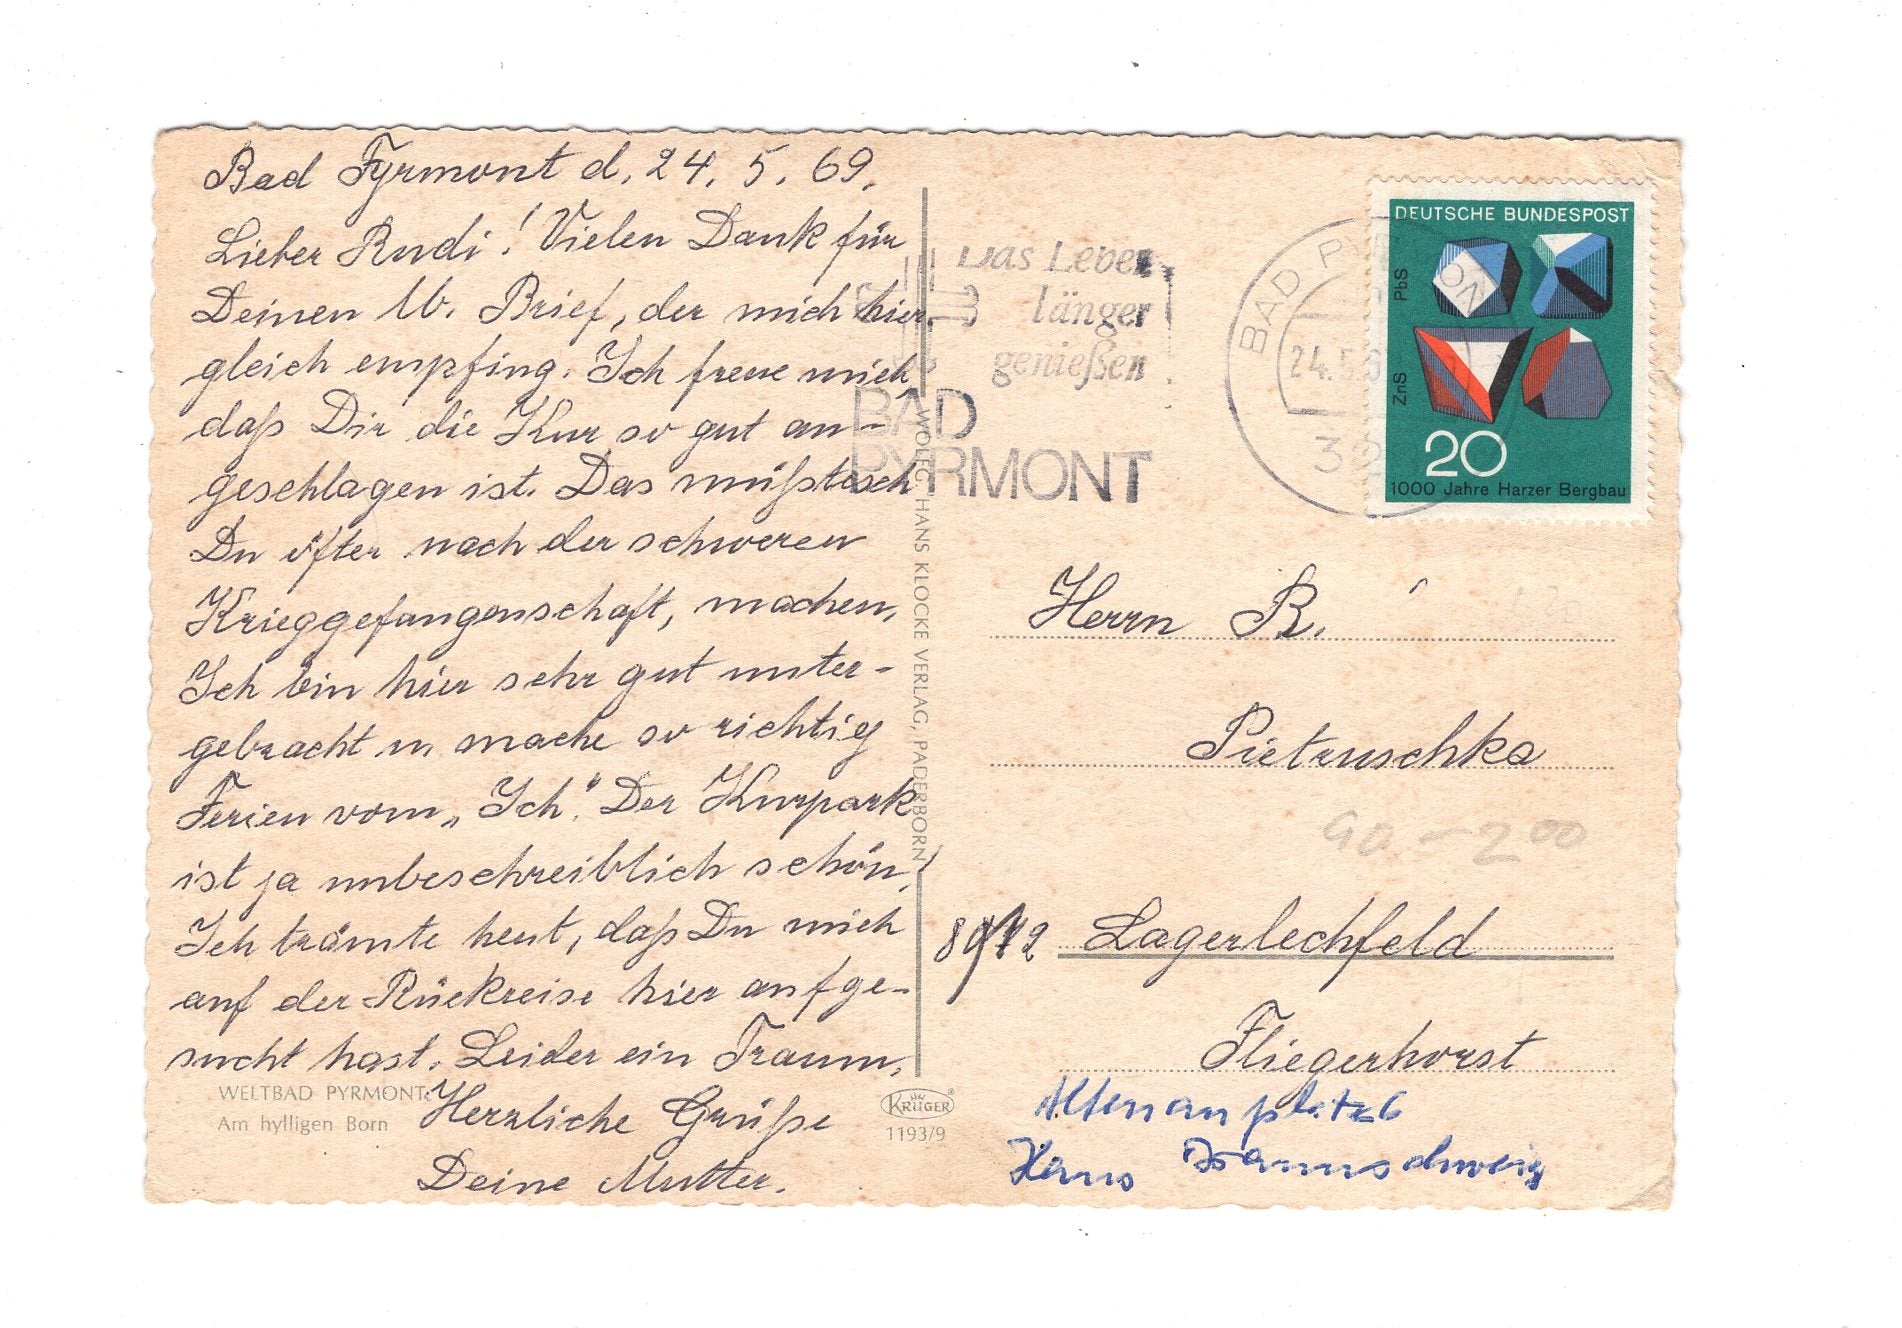 Bad Pyrmont d. 24. 5. 69.
Lieber Rudi! Vielen Dank für
Deinen lb. Brief, der mich hier
gleich empfing. Ich freue mich
daß Dir die Kur so gut an-
geschlagen ist. Das müßtesch
Du öfter nach der schweren
Krieggefangenschaft, machen.
Ich bin hier sehr gut unter-
gebracht u. mache so richtig
Ferien vom „Ich". Der Kurpark
ist ja unbeschreiblich schön.
Ich trämte heut, daß Du mich
auf der Rückreise hier aufge-
sucht hast. Leider ein Traum.
Herzliche Grüße
Deine Mutter.
WELTBAD PYRMONT:
Am hylligen Born
WOLFG. HANS KLOCKE VERLAG, PADERBORN
KRÜGER
1193/9
Das Leben
länger
genießen
BAD
PYRMONT
BAD PYRMONT
24.5.6
32
DEUTSCHE BUNDESPOST
PbS
ZnS
20
1000 Jahre Harzer Bergbau
Herrn R.
Pietruschka
90 - 200
Lagerlechfeld
Fliegerhorst
Altenauplatz 6
Haus Braunschweig